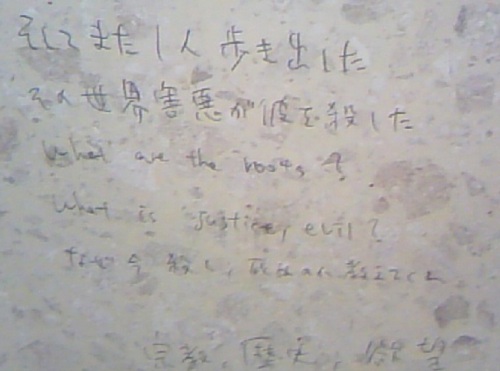 そしてまた1人歩き出した
その世界害悪が彼を殺した
What are the roots?
What is justice, evil?
今殺し, 教えてくれ
宗教, 歴史, 欲望